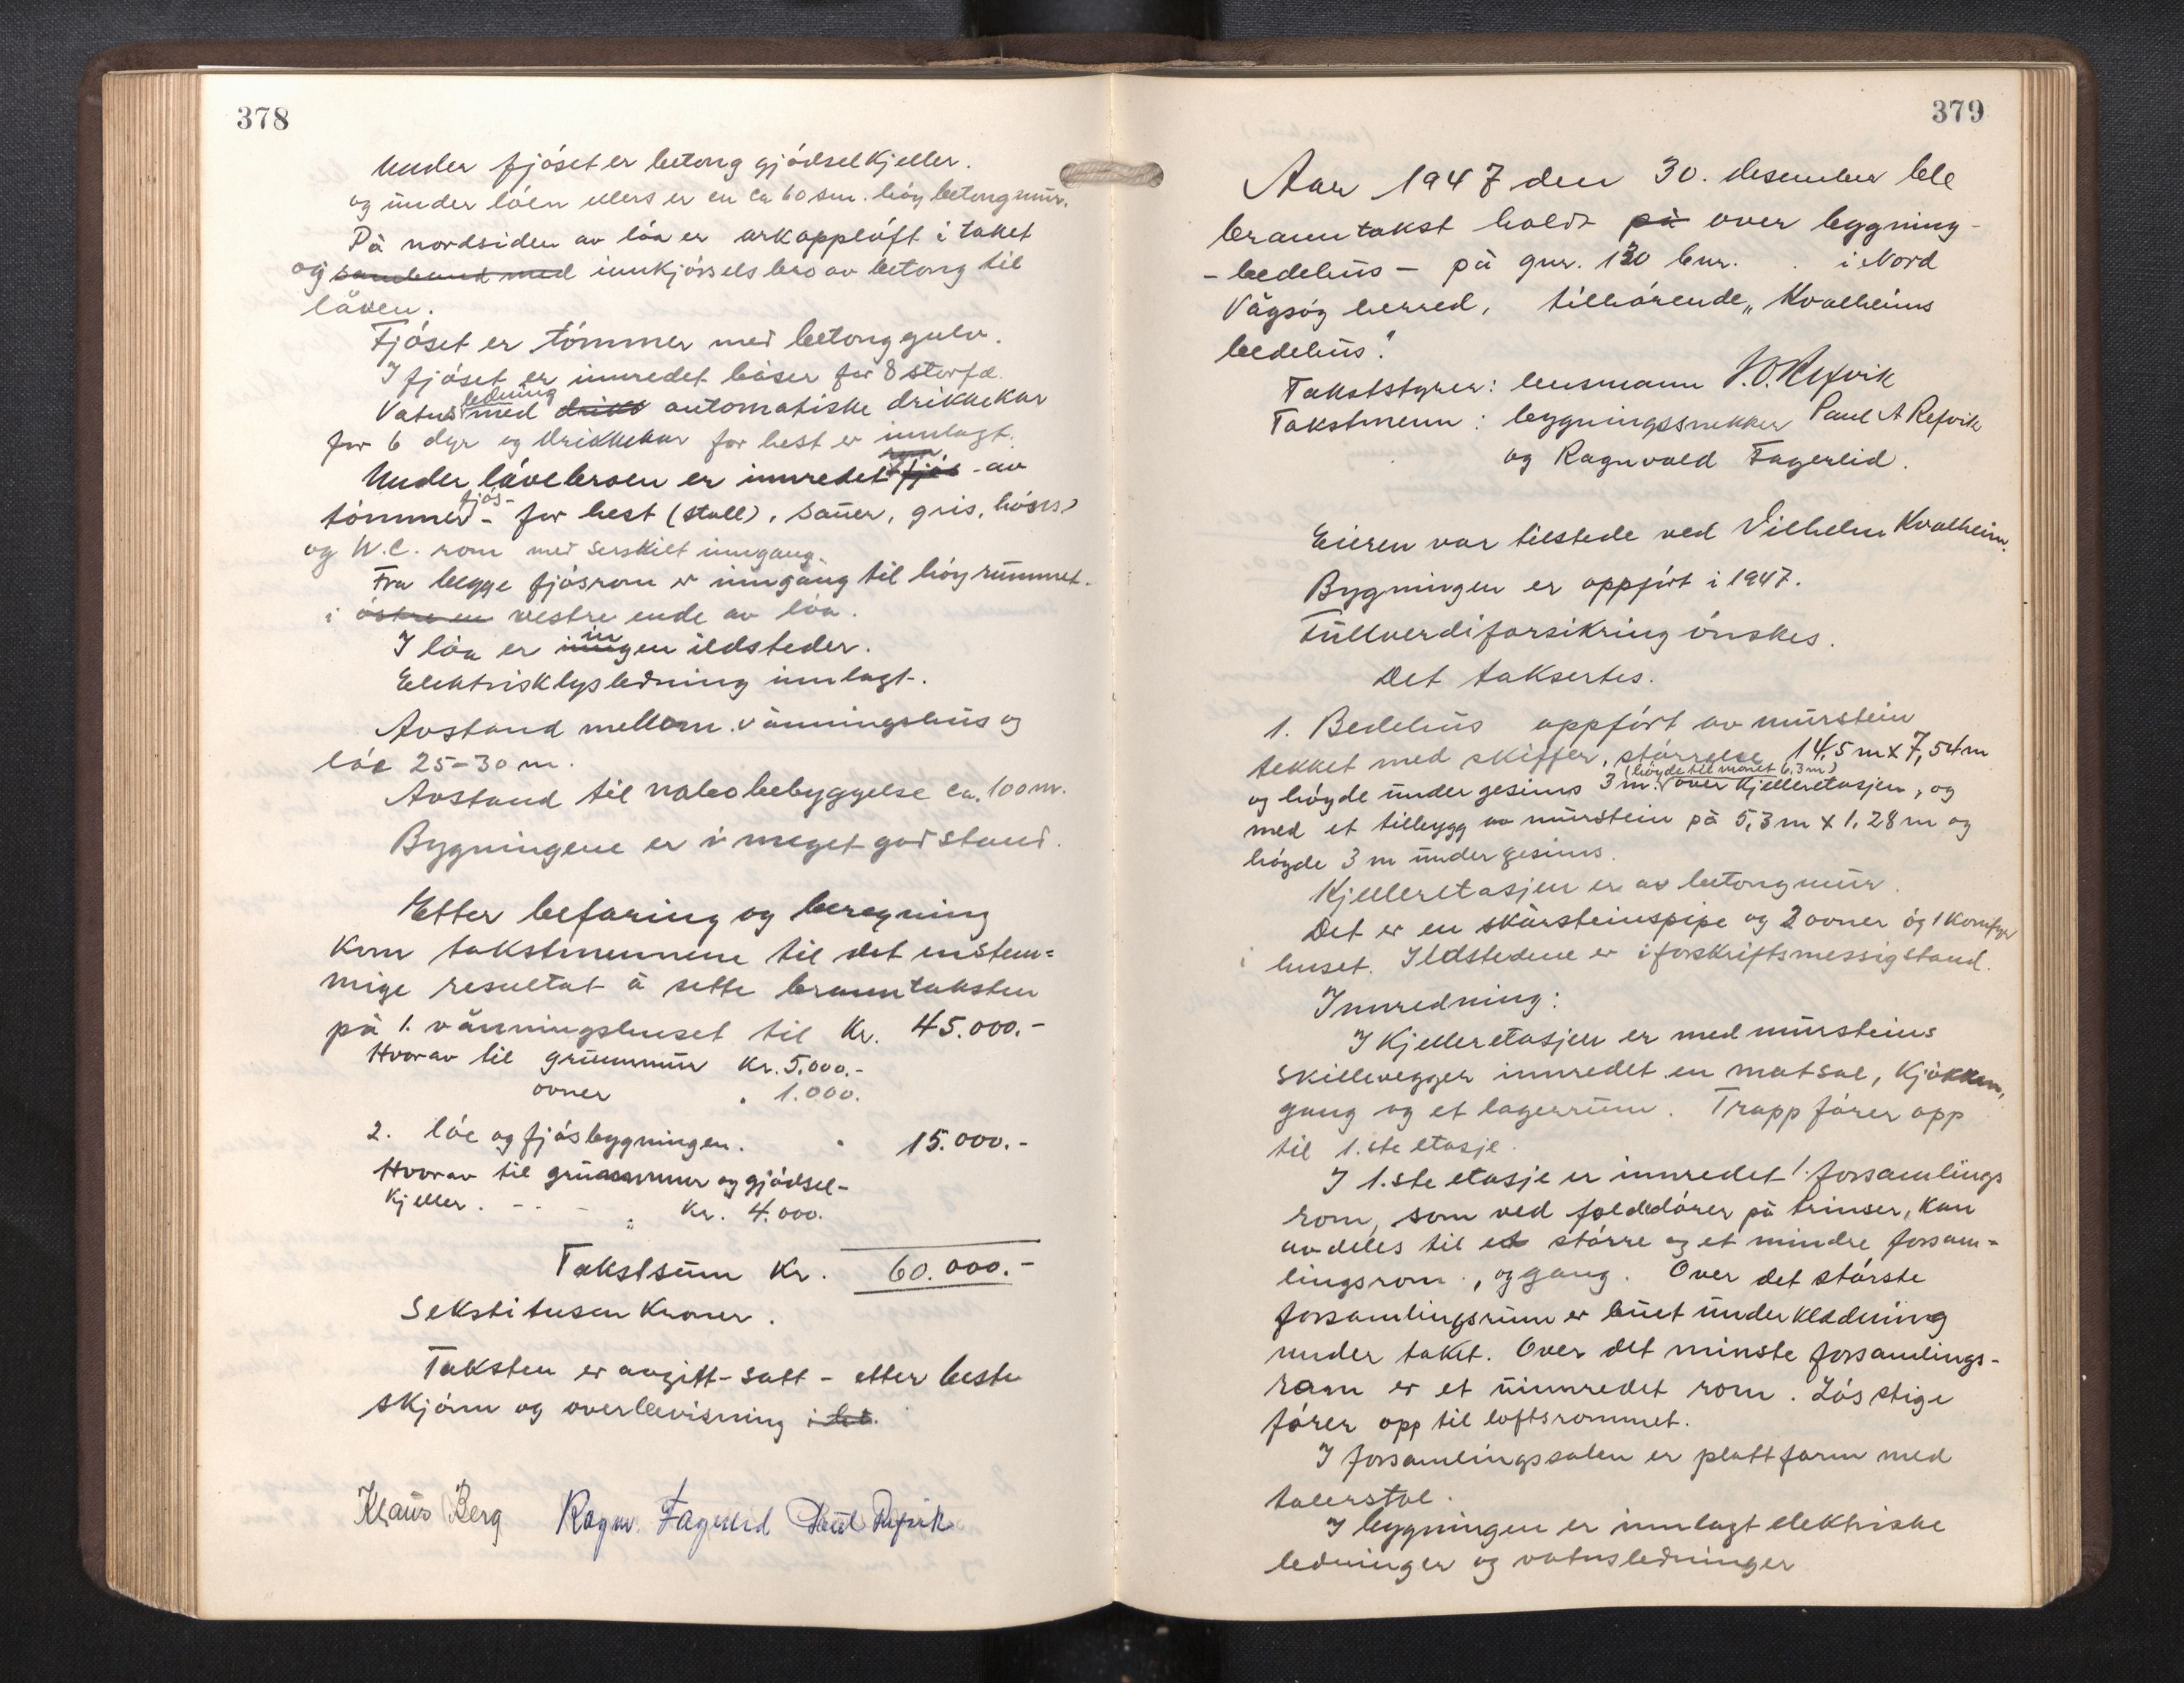 378
Under fjóset er betong gjódselkjeller.
og under lóen ellers er en ca 60 sm. hóy betongmur.
På nordsiden av lóa er arkopplóft i taket
og samband med innkjórselsbro av betong til
låven.
Fjóset er tómmer med betonggulv.
I fjóset er innredet båser for 8 storfd.
Vatnsledning med drikk automatiske drikkekar
for 6 dyr og drikkekar for hest er innlagt.
Under låvebroen er innredet rom fjós - av
tómmer fjós- for hest (stall), sauer, gris, hóns
og W.C. rom med serskilt inngang.
Fra begge fjósrom er inngang til hóyrummet
i óstre en vestre ende av lóa.
I lóa er ingen ildsteder.
Elektrisk lysledning innlagt.
Avstand mellom våningshus og
lóe 25-30 m.
Avstand til nabobebyggelse ca. 100 m.
Bygningene er i meget god stand.
Etter befaring og beregning
kom takstmennene til det enstem=
mige resultat å sette branntaksten
på 1. våningshuset til Kr. 45.000.-
Hvorav til grunnmur Kr. 5.000.-
ovner " 1.000.
2. lóe og fjósbygningen. " 15.000.-
Hvorav til grunnmur og gjódsel-
kjeller. - - - " Kr. 4.000.
Takstsum Kr. 60.000.-
Sekstitusen Kroner.
Taksten er avgitt - satt - etter beste
skjónn og overbevisning
Klaus Berg Ragnv. Fagerlid Paul Refvik
379
Aar 1947 den 30. desember ble
branntakst holdt på over bygning-
- bedehus - på gnr. 130 bnr. . i Nord
Vågsóy herred, tilhórende "Kvalheims
bedehus".
Takststyrer: lensmann J.O. Refvik
Takstmenn: bygningssnekker Paul A Refvik
og Ragnvald Fagerlid.
Eieren var tilstede ved Vilhelm Kvalheim.
Bygningen er oppfórt i 1947.
Fullverdiforsikring ónskes.
Det taksertes.
1. Bedehus oppfórt av murstein
tekket med skiffer, stórrelse 14,5 m x 7,54 m
og hóyde under gesims 3 m. (hóyde til mónet 6,3 m) over kjelleretasjen, og
med et tilbygg av murstein på 5,3 m x 1,28 m og
hóyde 3 m under gesims.
Kjelleretasjen er av betongmur.
Det er en skårsteinspipe og 2 ovner og 1 komfyr
i huset. Ildstedene er i forskriftsmessig stand.
Innredning:
I Kjelleretasjen er med mursteins
skillevegger innredet en matsal, Kjókken,
gang og et lagerrum. Trapp fórer opp
til 1.ste etasje.
I 1.ste etasje er innredet 1. forsamlings
rom, som ved foldedórer på trinser, kan
avdeles til et stórre og et mindre forsam=
lingsrom, og gang. Over det stórste
forsamlingsrum er buet underkledning
under taket. Over det minste forsamlings-
rom er et uinnredet rom. Lós stige
fórer opp til loftsrommet.
I forsamlingssalen er plattform med
talerstol.
I bygningen er innlagt elektriske
ledninger og vatnsledninger